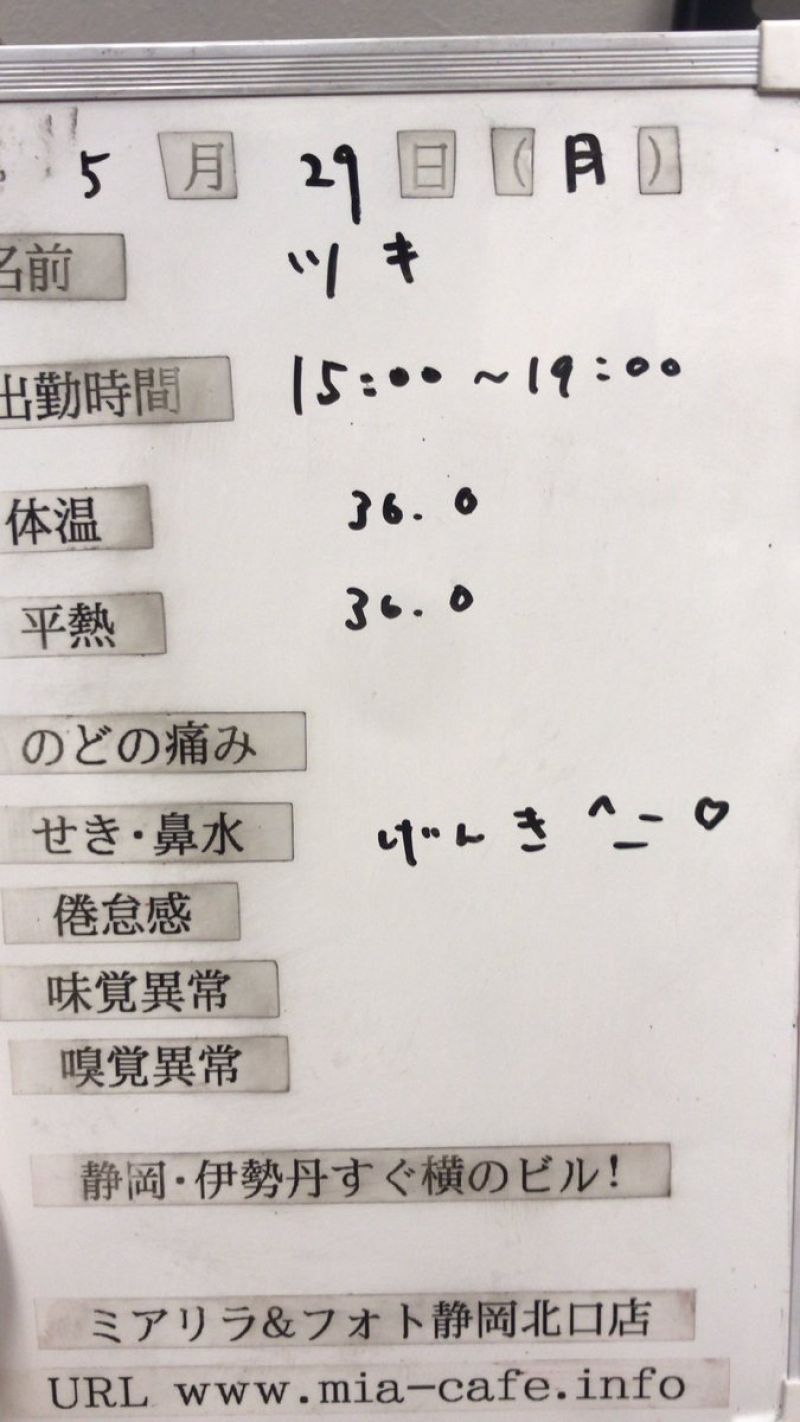 5月29日(月)
名前 ツキ
出勤時間 15:00~19:00
体温 36.0
平熱 36.0
のどの痛み
せき・鼻水 げんき ^_- ♡
倦怠感
味覚異常
嗅覚異常
静岡・伊勢丹すぐ横のビル!
ミアリラ&フォト静岡北口店
URL www.mia-cafe.info